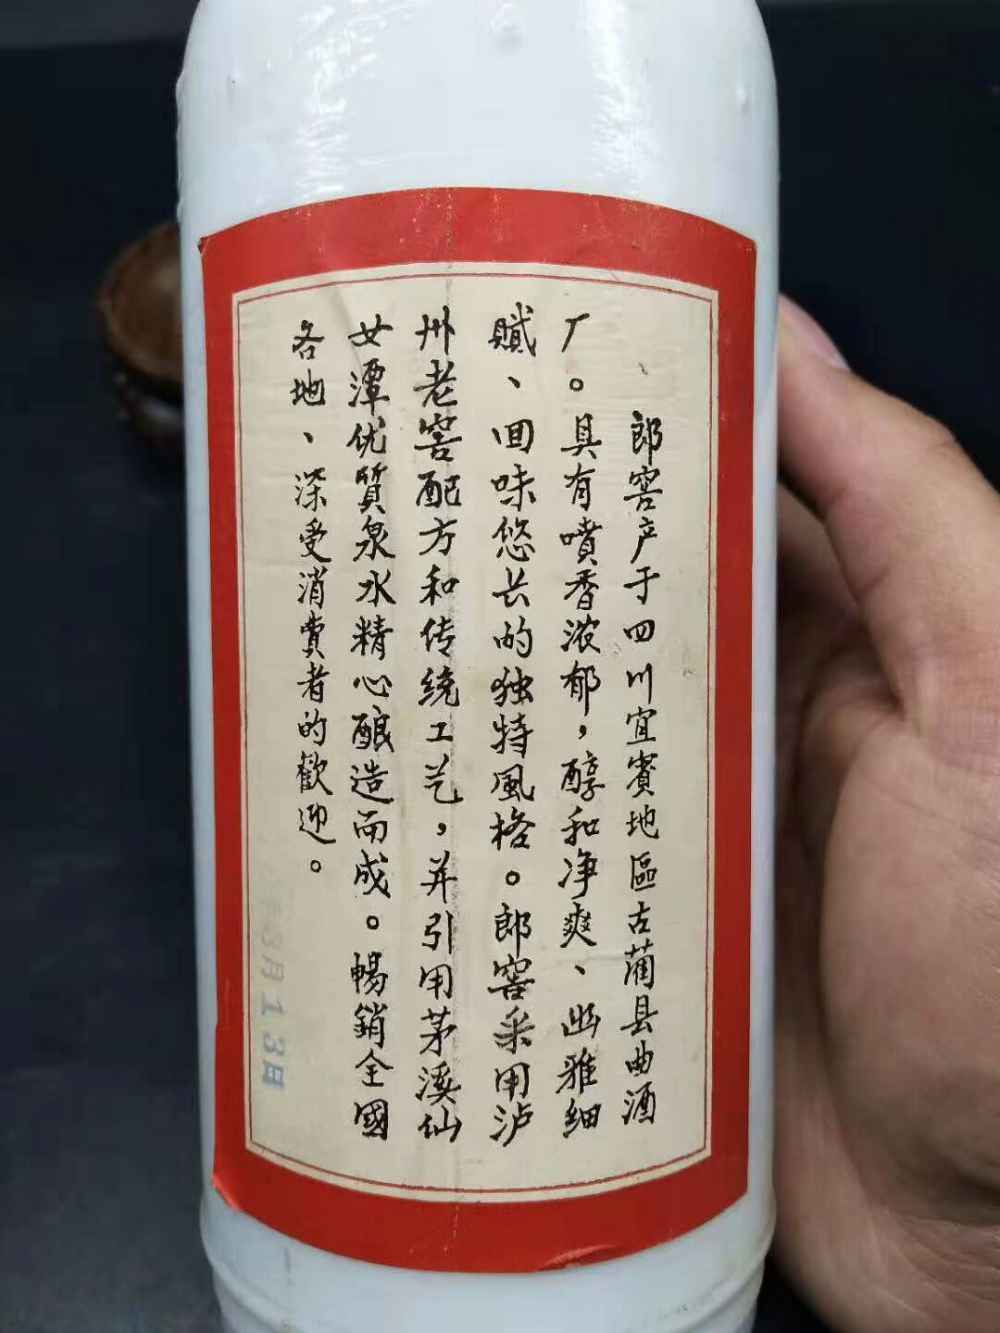 郎窖产于四川宜賓地區古蔺县曲酒
厂。具有噴香浓郁，醇和净爽、幽雅细
膩、回味悠长的独特風格。郎窖采用泸
州老窖配方和传统工艺，并引用茅溪仙
女潭优質泉水精心酿造而成。暢銷全國
各地、深受消費者的歡迎。
3月13日